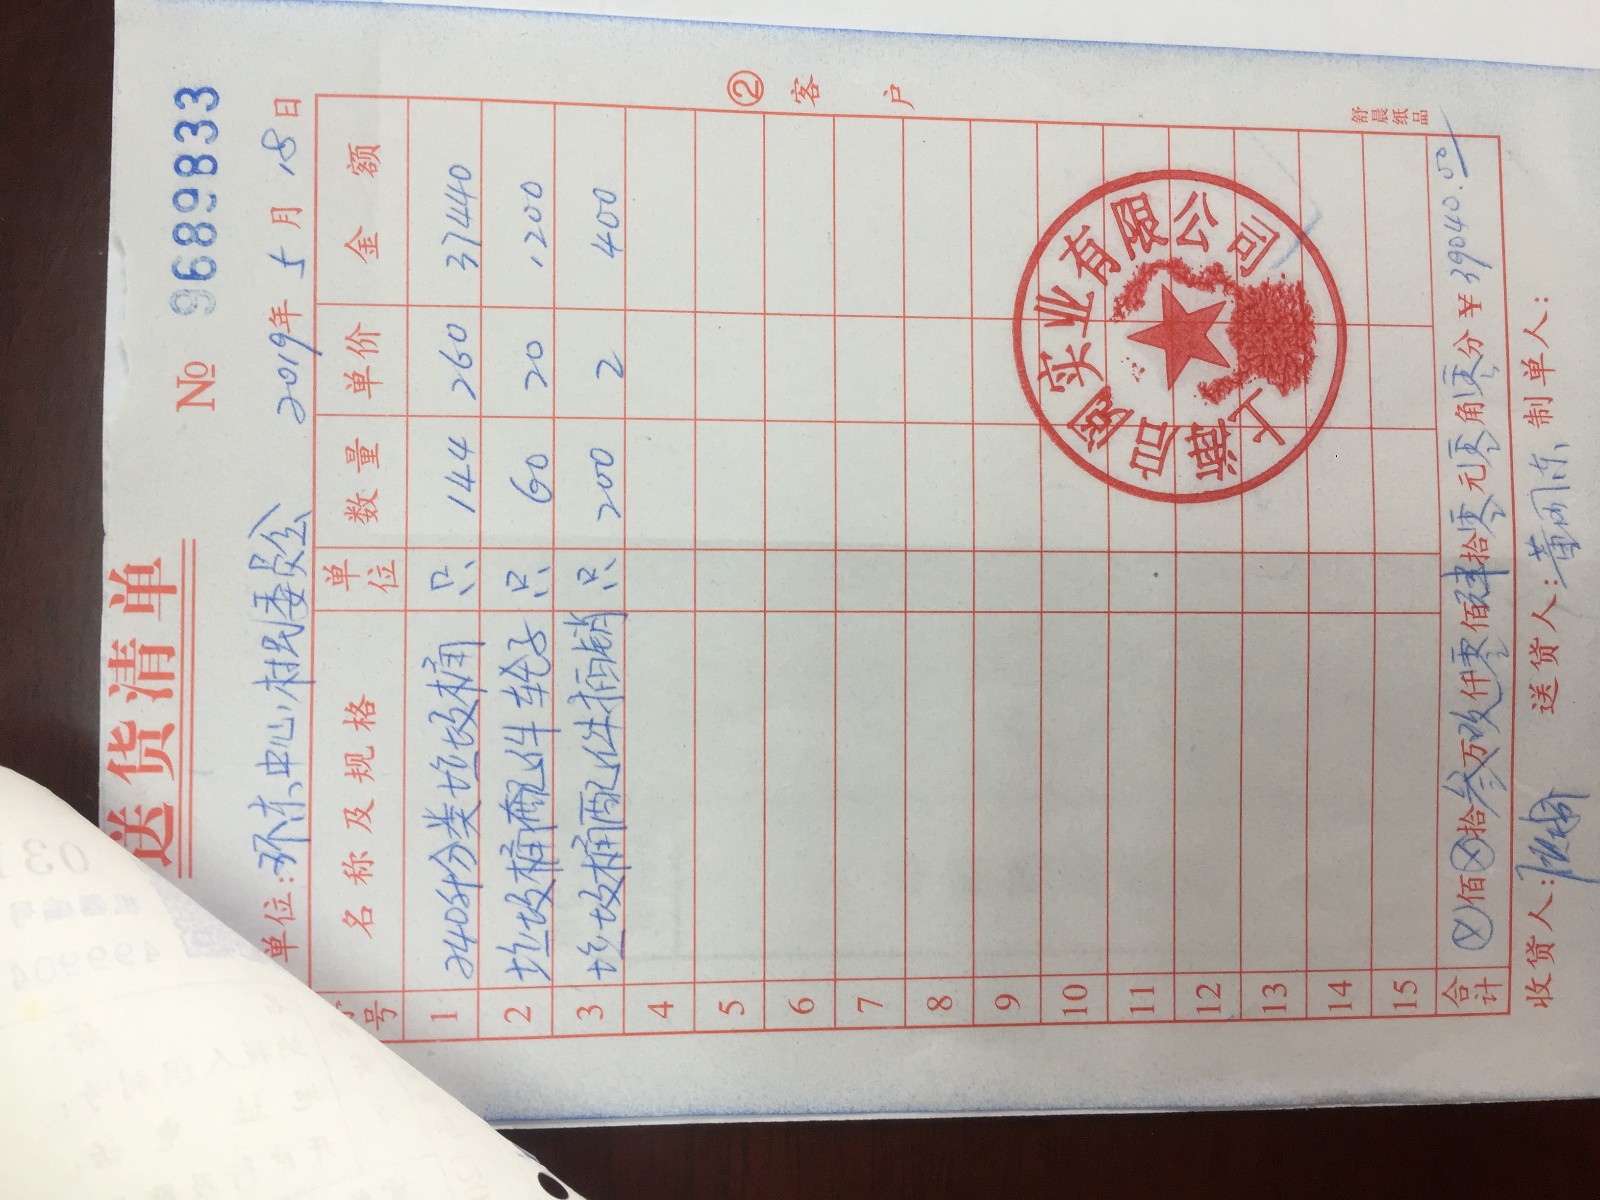 送货清单
№ 9689833
单位:环东中心村民委员会 2019年5月18日
号 名称及规格 单位 数量 单价 金额
1 240升分类垃圾桶 只 144 260 37440
2 垃圾桶配件轮子 只 60 20 1200
3 垃圾桶配件插销 只 200 2 400
4
5
6
7
8
9
10
11
12
13
14
15
合计 ⊗佰⊗拾叁万玖仟零佰肆拾零元零角零分¥39040.00
收货人: 送货人: 制单人:
② 客户
舒晨纸品
上海四阁实业有限公司